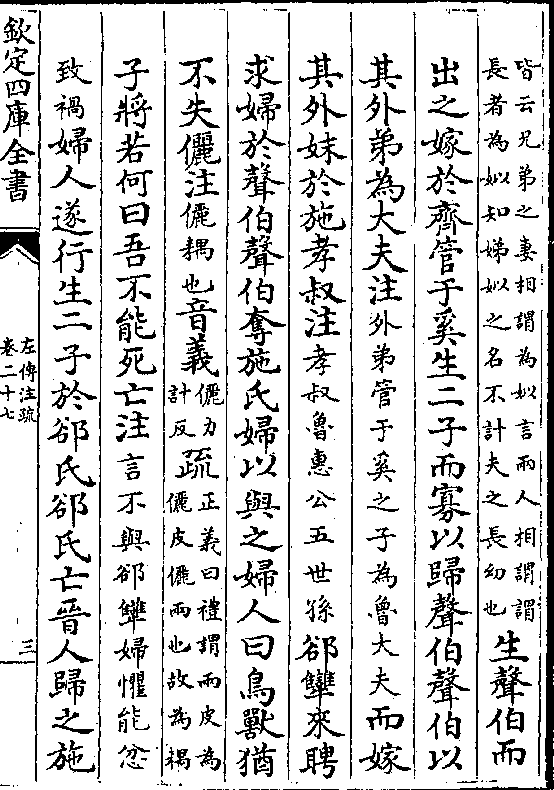 皆云兄弟之妻相謂為姒言兩人相謂謂
長者為姒知娣姒之名不計夫之長幼也
生聲伯而
出之嫁於齊管于奚生二子而寡以歸聲伯聲伯以
其外弟為大夫注外弟管于奚之子為魯大夫而嫁
其外妹於施孝叔注孝叔魯惠公五世孫郤犨來聘
求婦於聲伯聲伯奪施氏婦以與之婦人曰鳥獸猶
不失儷注儷耦也音義儷力
計反疏正義曰禮謂兩皮為
儷皮儷兩也故為耦
子將若何曰吾不能死亡注言不與郤犨婦懼能忿
致禍婦人遂行生二子於郤氏郤氏亡晉人歸之施
欽定四庫全書
左傳注疏
卷二十七
三